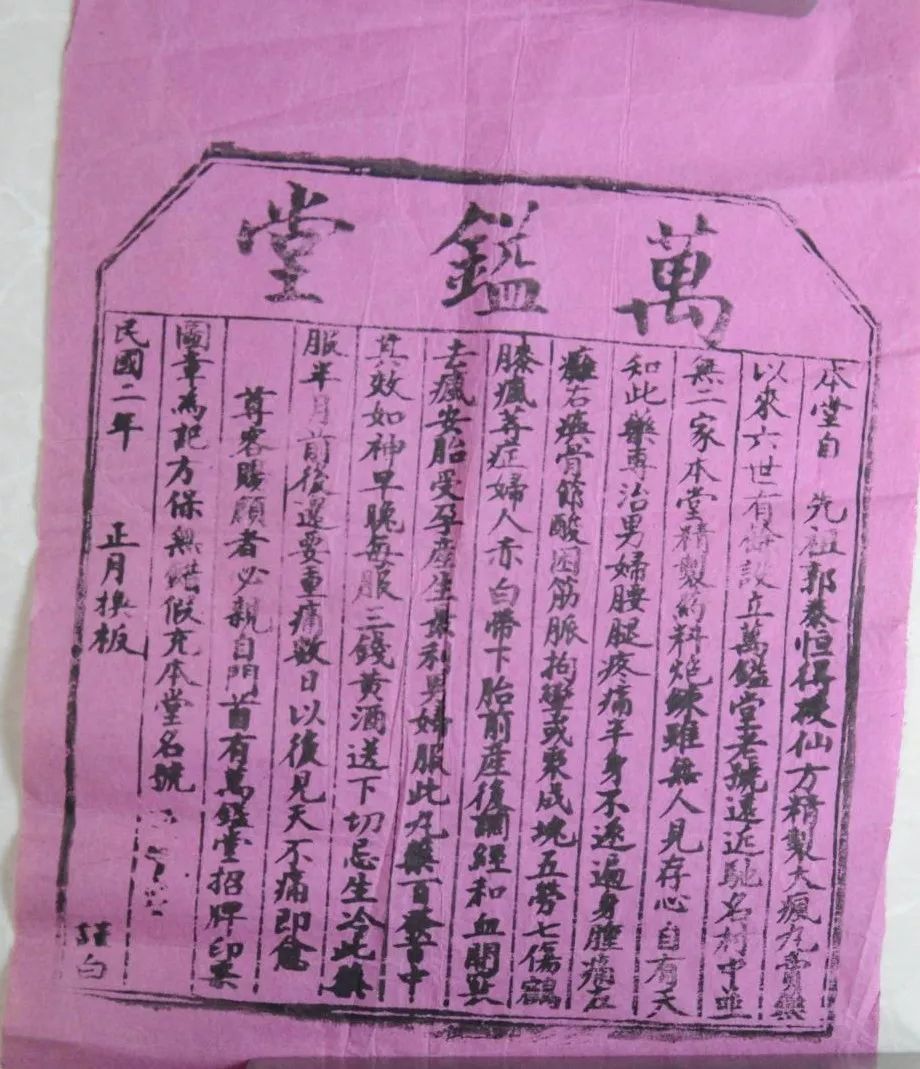 萬鎰堂
本堂自 先祖郭泰恒得授仙方精製大瘋丸賣藥
以來六世有餘設立萬鎰堂老號遠近馳名村中並
無二家本堂精製药料炮鍊雖無人見存心自有天
和此藥專治男婦腰腿疼痛半身不遂遍身腫痛左
癱右瘓骨節酸困筋脈拘攣或束成塊五勞七傷鶴
膝瘋等症婦人赤白帶下胎前產後調經和血開
去瘋安胎受孕產生最利男婦服此丸藥百發百中
其效如神早晚每服三錢黄酒送下切忌生冷此藥
服半月前後還要重痛数日以後見天不痛即愈
尊客賜顧者必親自門首有萬鎰堂招牌印票
圖章為記方保無錯假充本堂名號
民國二年 正月換板 謹白